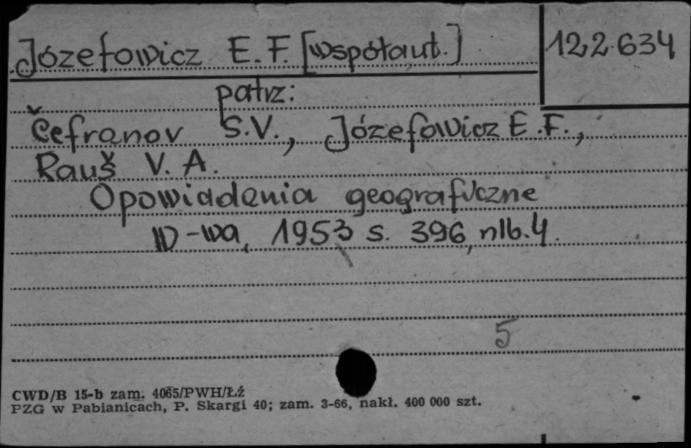 Józefowicz E.F. [współaut.]
122.634
patrz:
Čefranov S.V., Józefowicz E.F.,
Rauš V. A.
Opowiadania geograficzne
W-wa, 1953 s. 396, nlb. 4.
5
CWD/B 15-b zam. 4065/PWH/Łź
PZG w Pabianicach, P. Skargi 40; zam. 3-66, nakł. 400 000 szt.